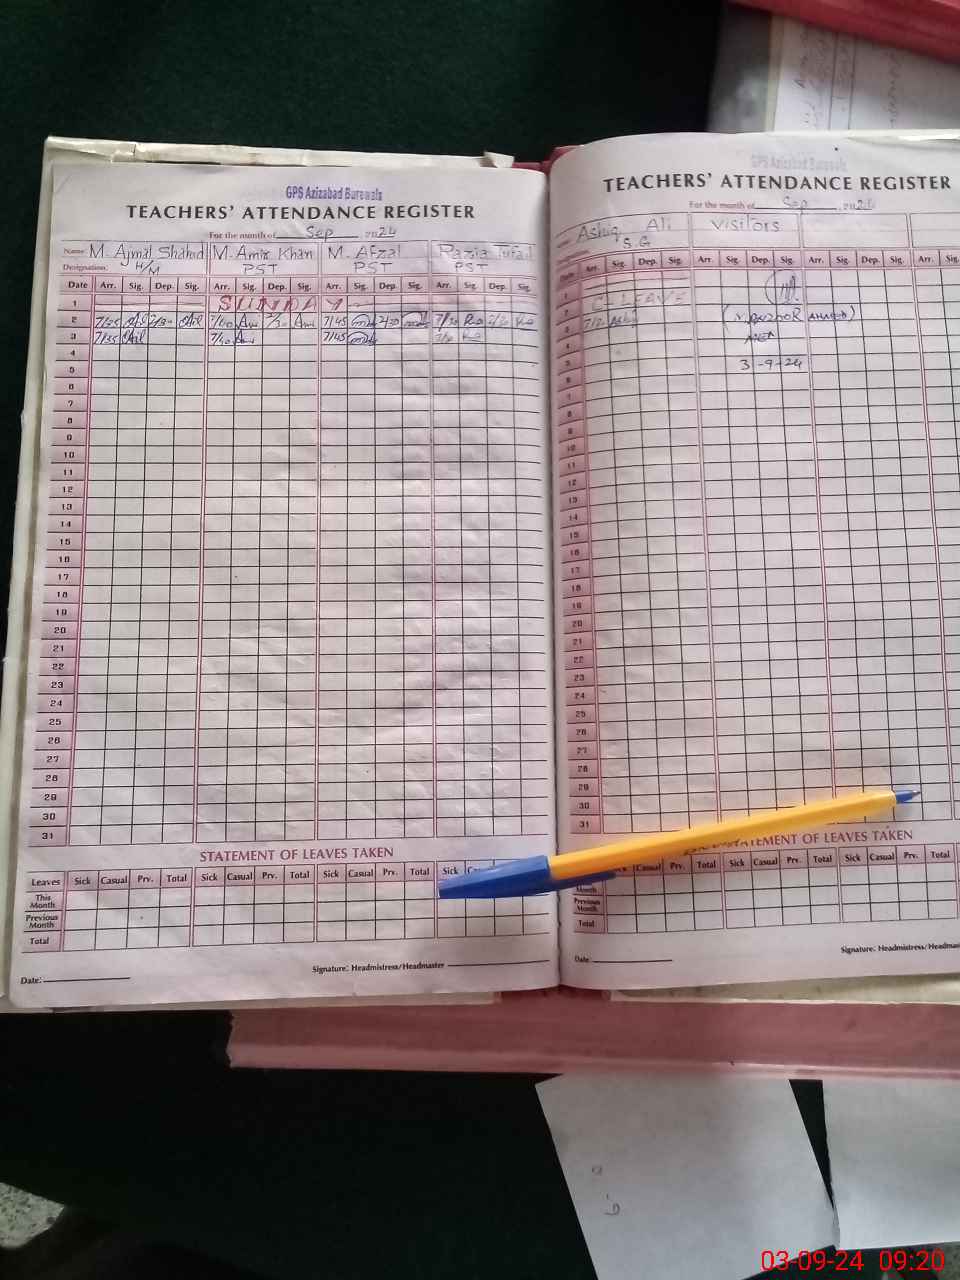 GPS Azizabad Burewala
TEACHERS' ATTENDANCE REGISTER
For the month of Sep 2024
Name: M. Ajmal Shahid M. Amir Khan M. Afzal Razia Tufail
Designation: H/M PST PST PST
Date Arr. Sig. Dep. Sig. Arr. Sig. Dep. Sig. Arr. Sig. Dep. Sig. Arr. Sig. Dep. Sig.
1 SUNDAY
2 7/25 7/40 7/45 2/30 7/30
3 7/35 7/40 7/45
4
5
6
7
8
9
10
11
12
13
14
15
16
17
18
19
20
21
22
23
24
25
26
27
28
29
30
31
STATEMENT OF LEAVES TAKEN
Leaves Sick Casual Prv. Total Sick Casual Prv. Total Sick Casual Prv. Total Sick
This Month
Previous Month
Total
Signature: Headmistress/Headmaster
Date:
GPS Azizabad Burewala
TEACHERS' ATTENDANCE REGISTER
For the month of Sep 2024
Ashiq Ali Visitors
S.G
Date Arr. Sig. Dep. Sig. Arr. Sig. Dep. Sig. Arr. Sig. Dep. Sig. Arr. Sig.
1
2 C-LEAVE
3 (MANZOOR AHMAD)
4
5 3-9-24
6
7
8
9
10
11
12
13
14
15
16
17
18
19
20
21
22
23
24
25
26
27
28
29
30
31
STATEMENT OF LEAVES TAKEN
Casual Prv. Total Sick Casual Prv. Total Sick Casual Prv. Total
Month
Previous Month
Total
Signature: Headmistress/Headmas
Date
03-09-24 09:20